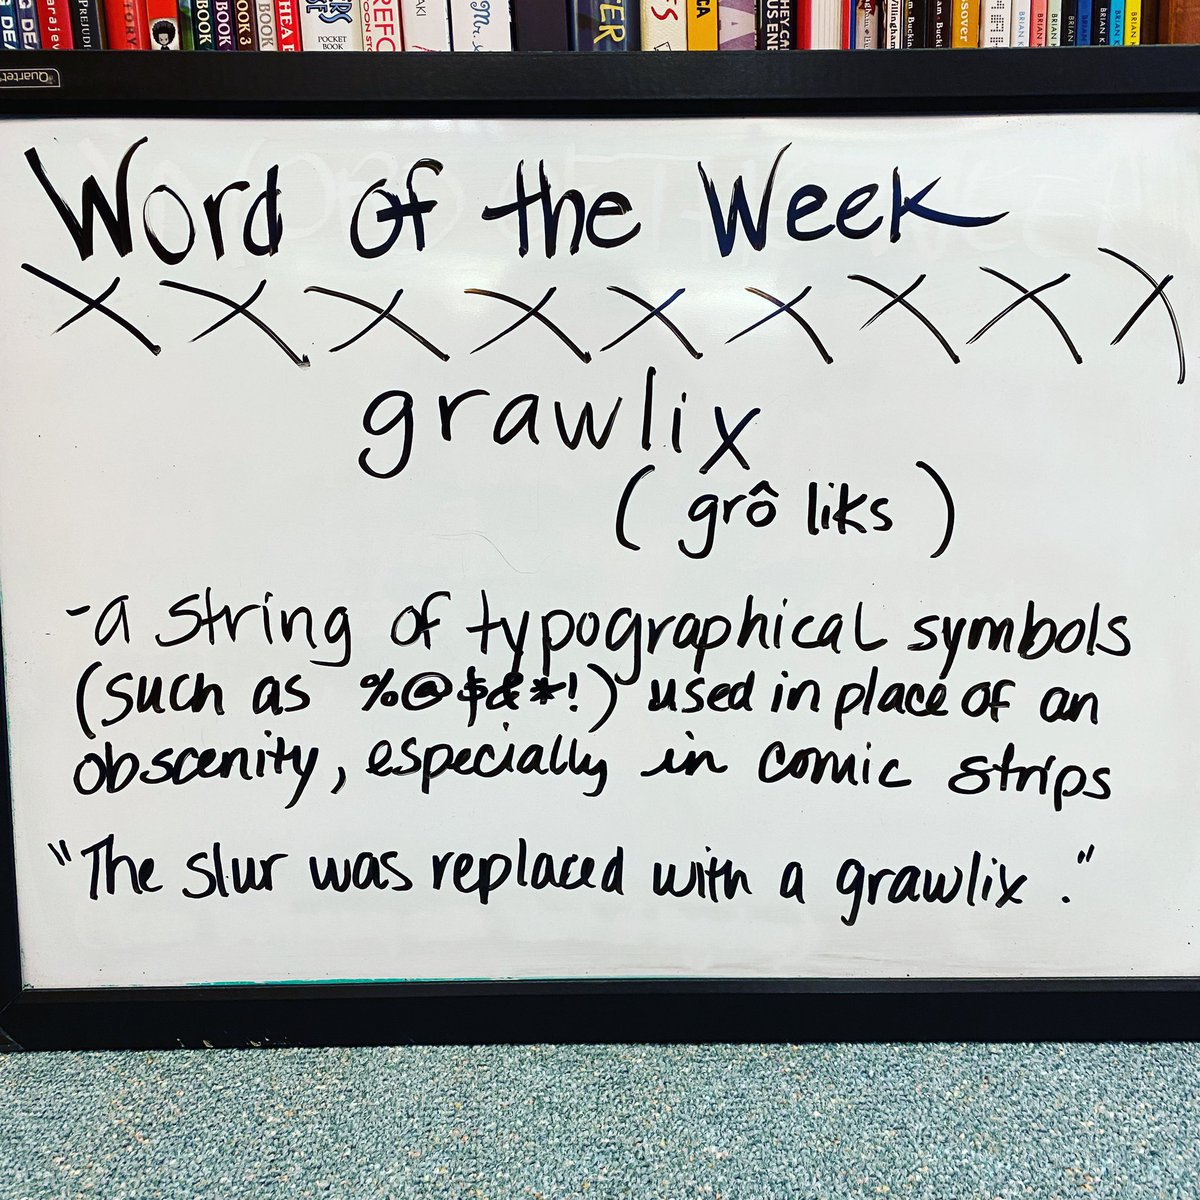 Quartet
BOOK 3
BOOK
POCKET
BOOK
Mr.
Word of the Week
X X X X X X X X X
grawlix
( grô liks )
-a string of typographical symbols
(such as %@$&*!) used in place of an
obscenity, especially in comic strips
"The slur was replaced with a grawlix."